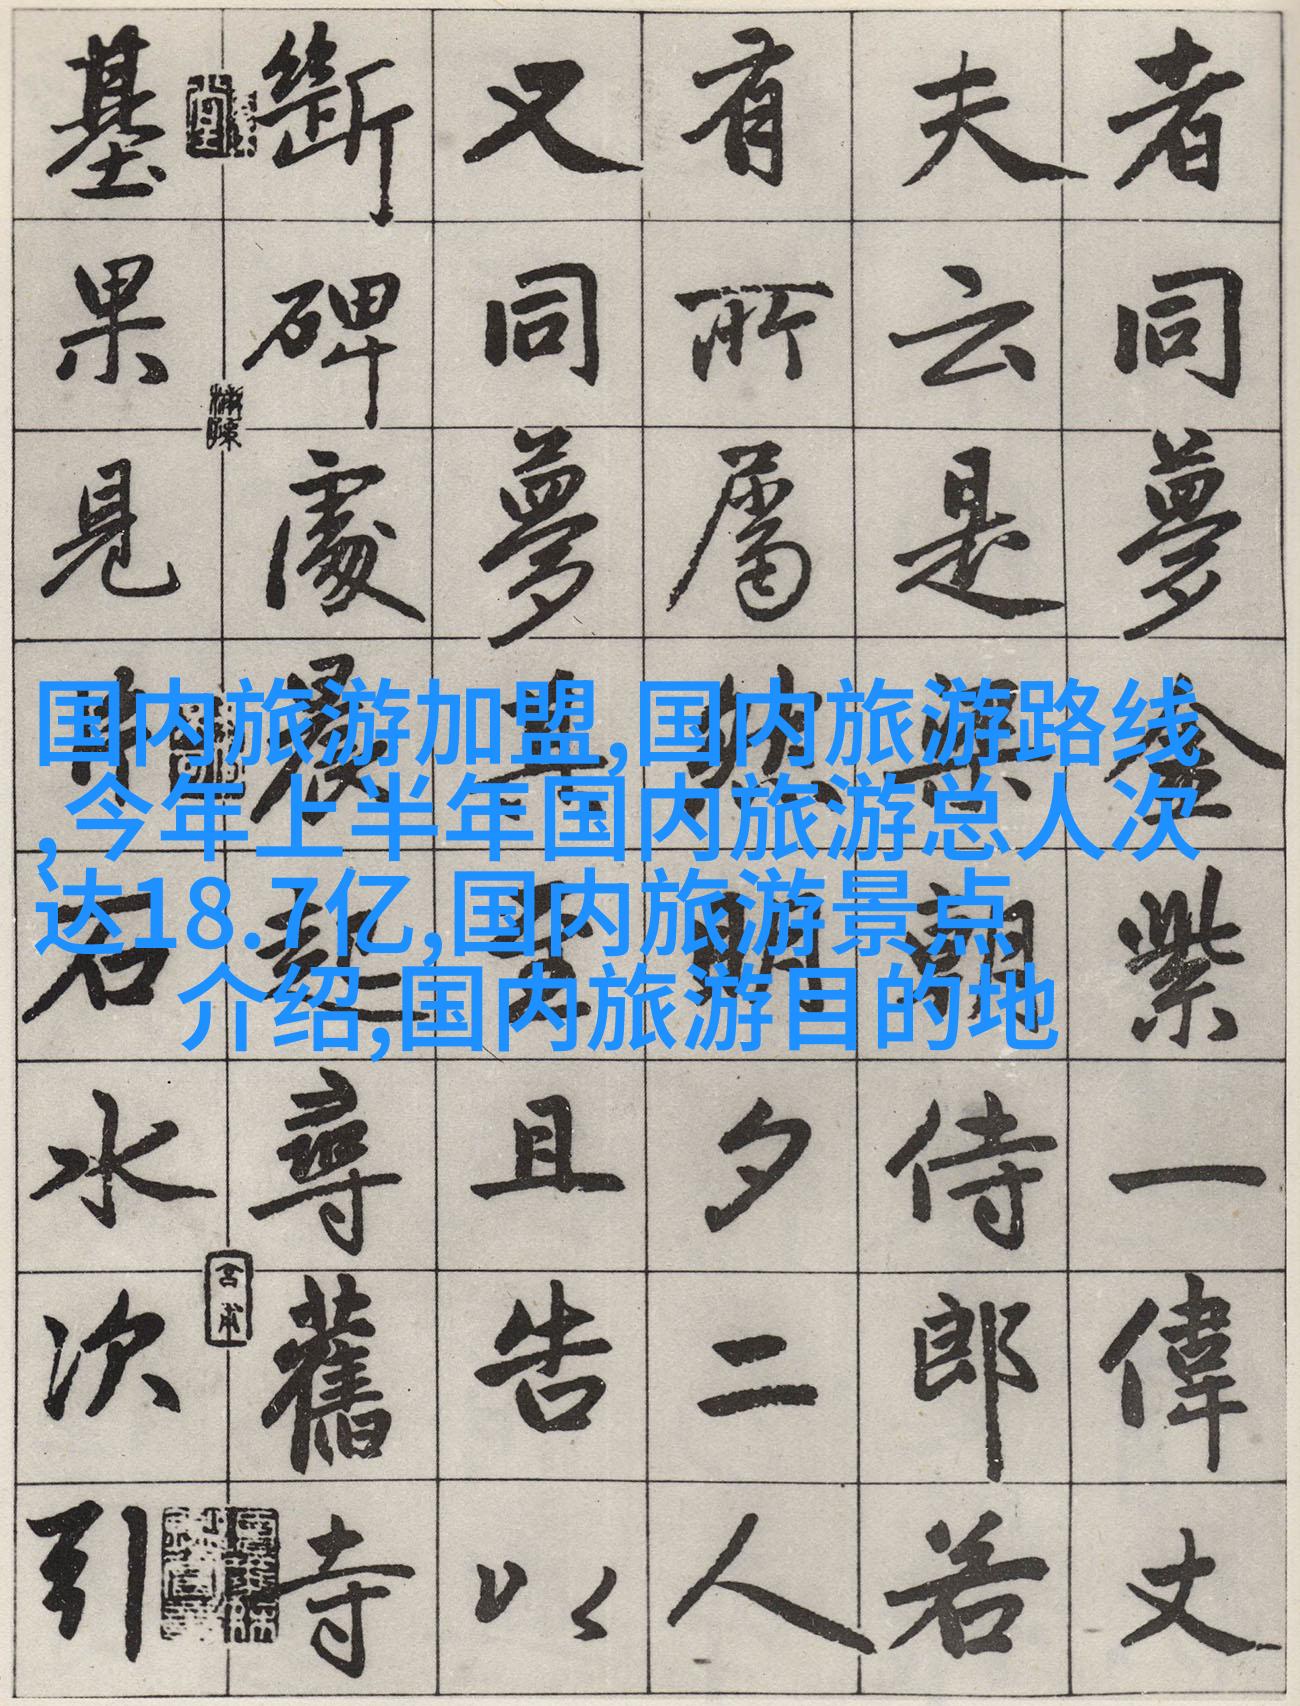 者同夢金紫一偉丈
夫云是梁朝侍郎若
有所属然明夕二人
又同夢且告以
斷碑處晨起尋舊寺
基果見井石水次引
国内旅游加盟,国内旅游路线
,今年上半年国内旅游总人次
达18.7亿,国内旅游景点
介绍,国内旅游目的地